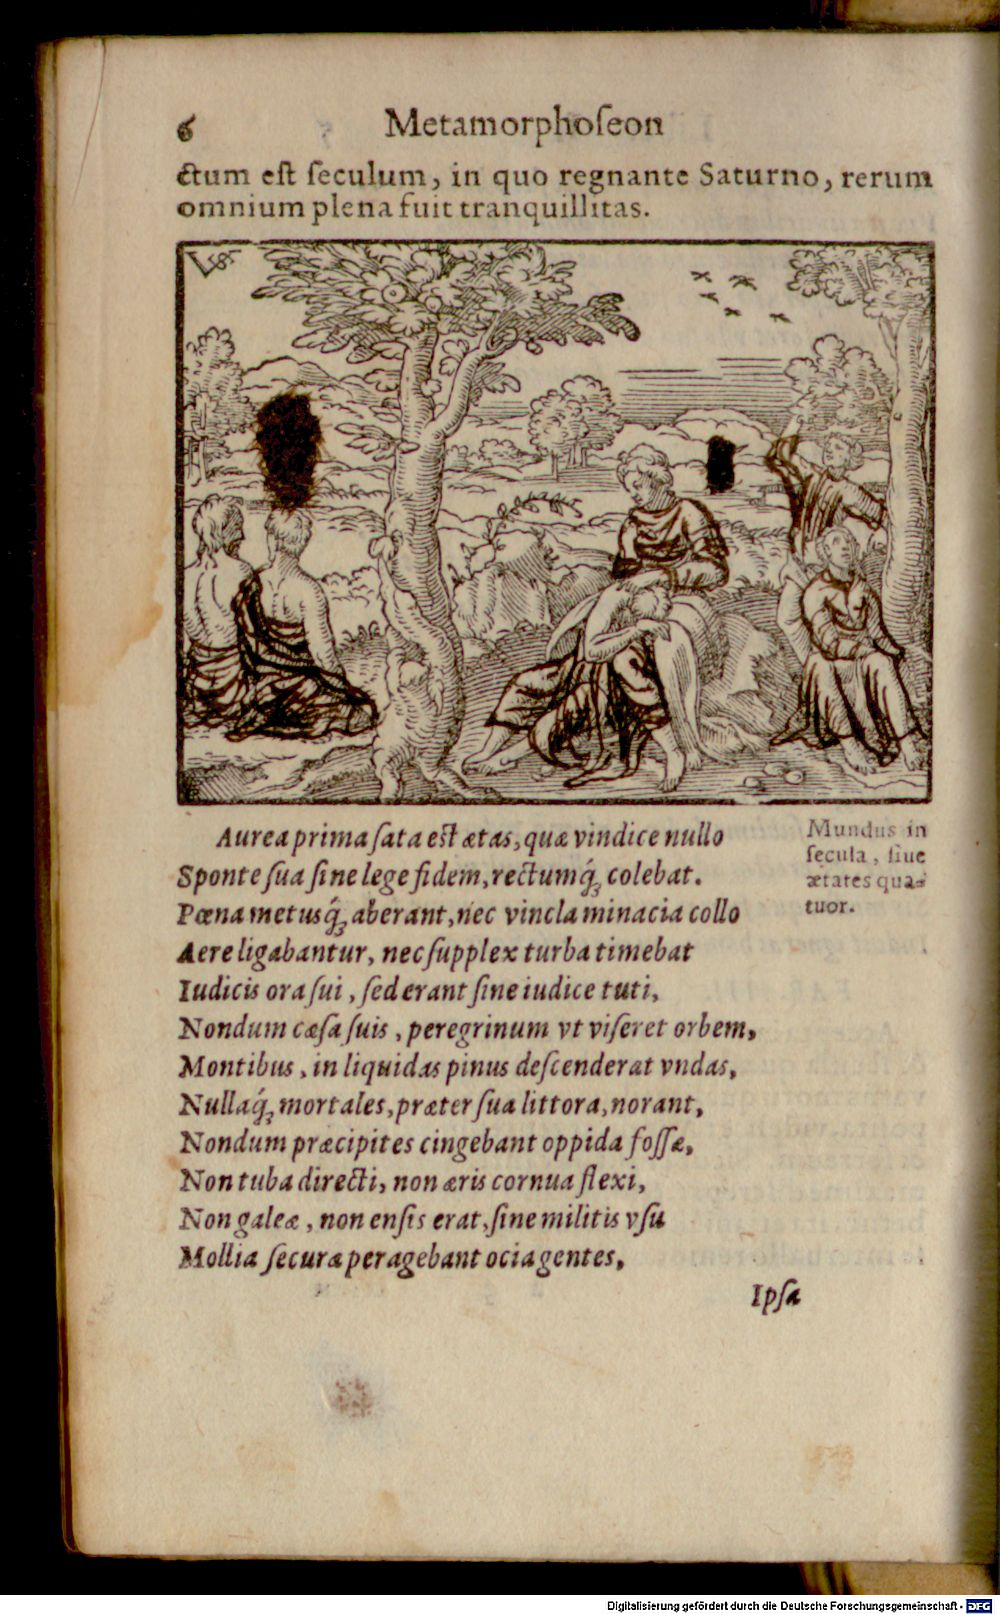 6 Metamorphoſeon
ctum eſt ſeculum, in quo regnante Saturno, rerum
omnium plena fuit tranquillitas.
Aurea prima ſata eſt ætas, quæ vindice nullo
Sponte ſua ſine lege fidem, rectumq́ꝫ colebat.
Pœna metusq́ꝫ aberant, nec vincla minacia collo
Aere ligabantur, nec ſupplex turba timebat
Iudicis ora ſui, ſed erant ſine iudice tuti,
Nondum cæſa ſuis, peregrinum vt viſeret orbem,
Montibus, in liquidas pinus deſcenderat vndas,
Nullaq́ꝫ mortales, præter ſua littora, norant,
Nondum præcipites cingebant oppida foſſæ,
Non tuba directi, non æris cornua flexi,
Non galeæ, non enſis erat, ſine militis vſu
Mollia ſecuræ peragebant ocia gentes,
Mundus in
ſecula, ſiue
ætates qua-
tuor.
Ipſa
Digitalisierung gefördert durch die Deutsche Forschungsgemeinschaft - DFG